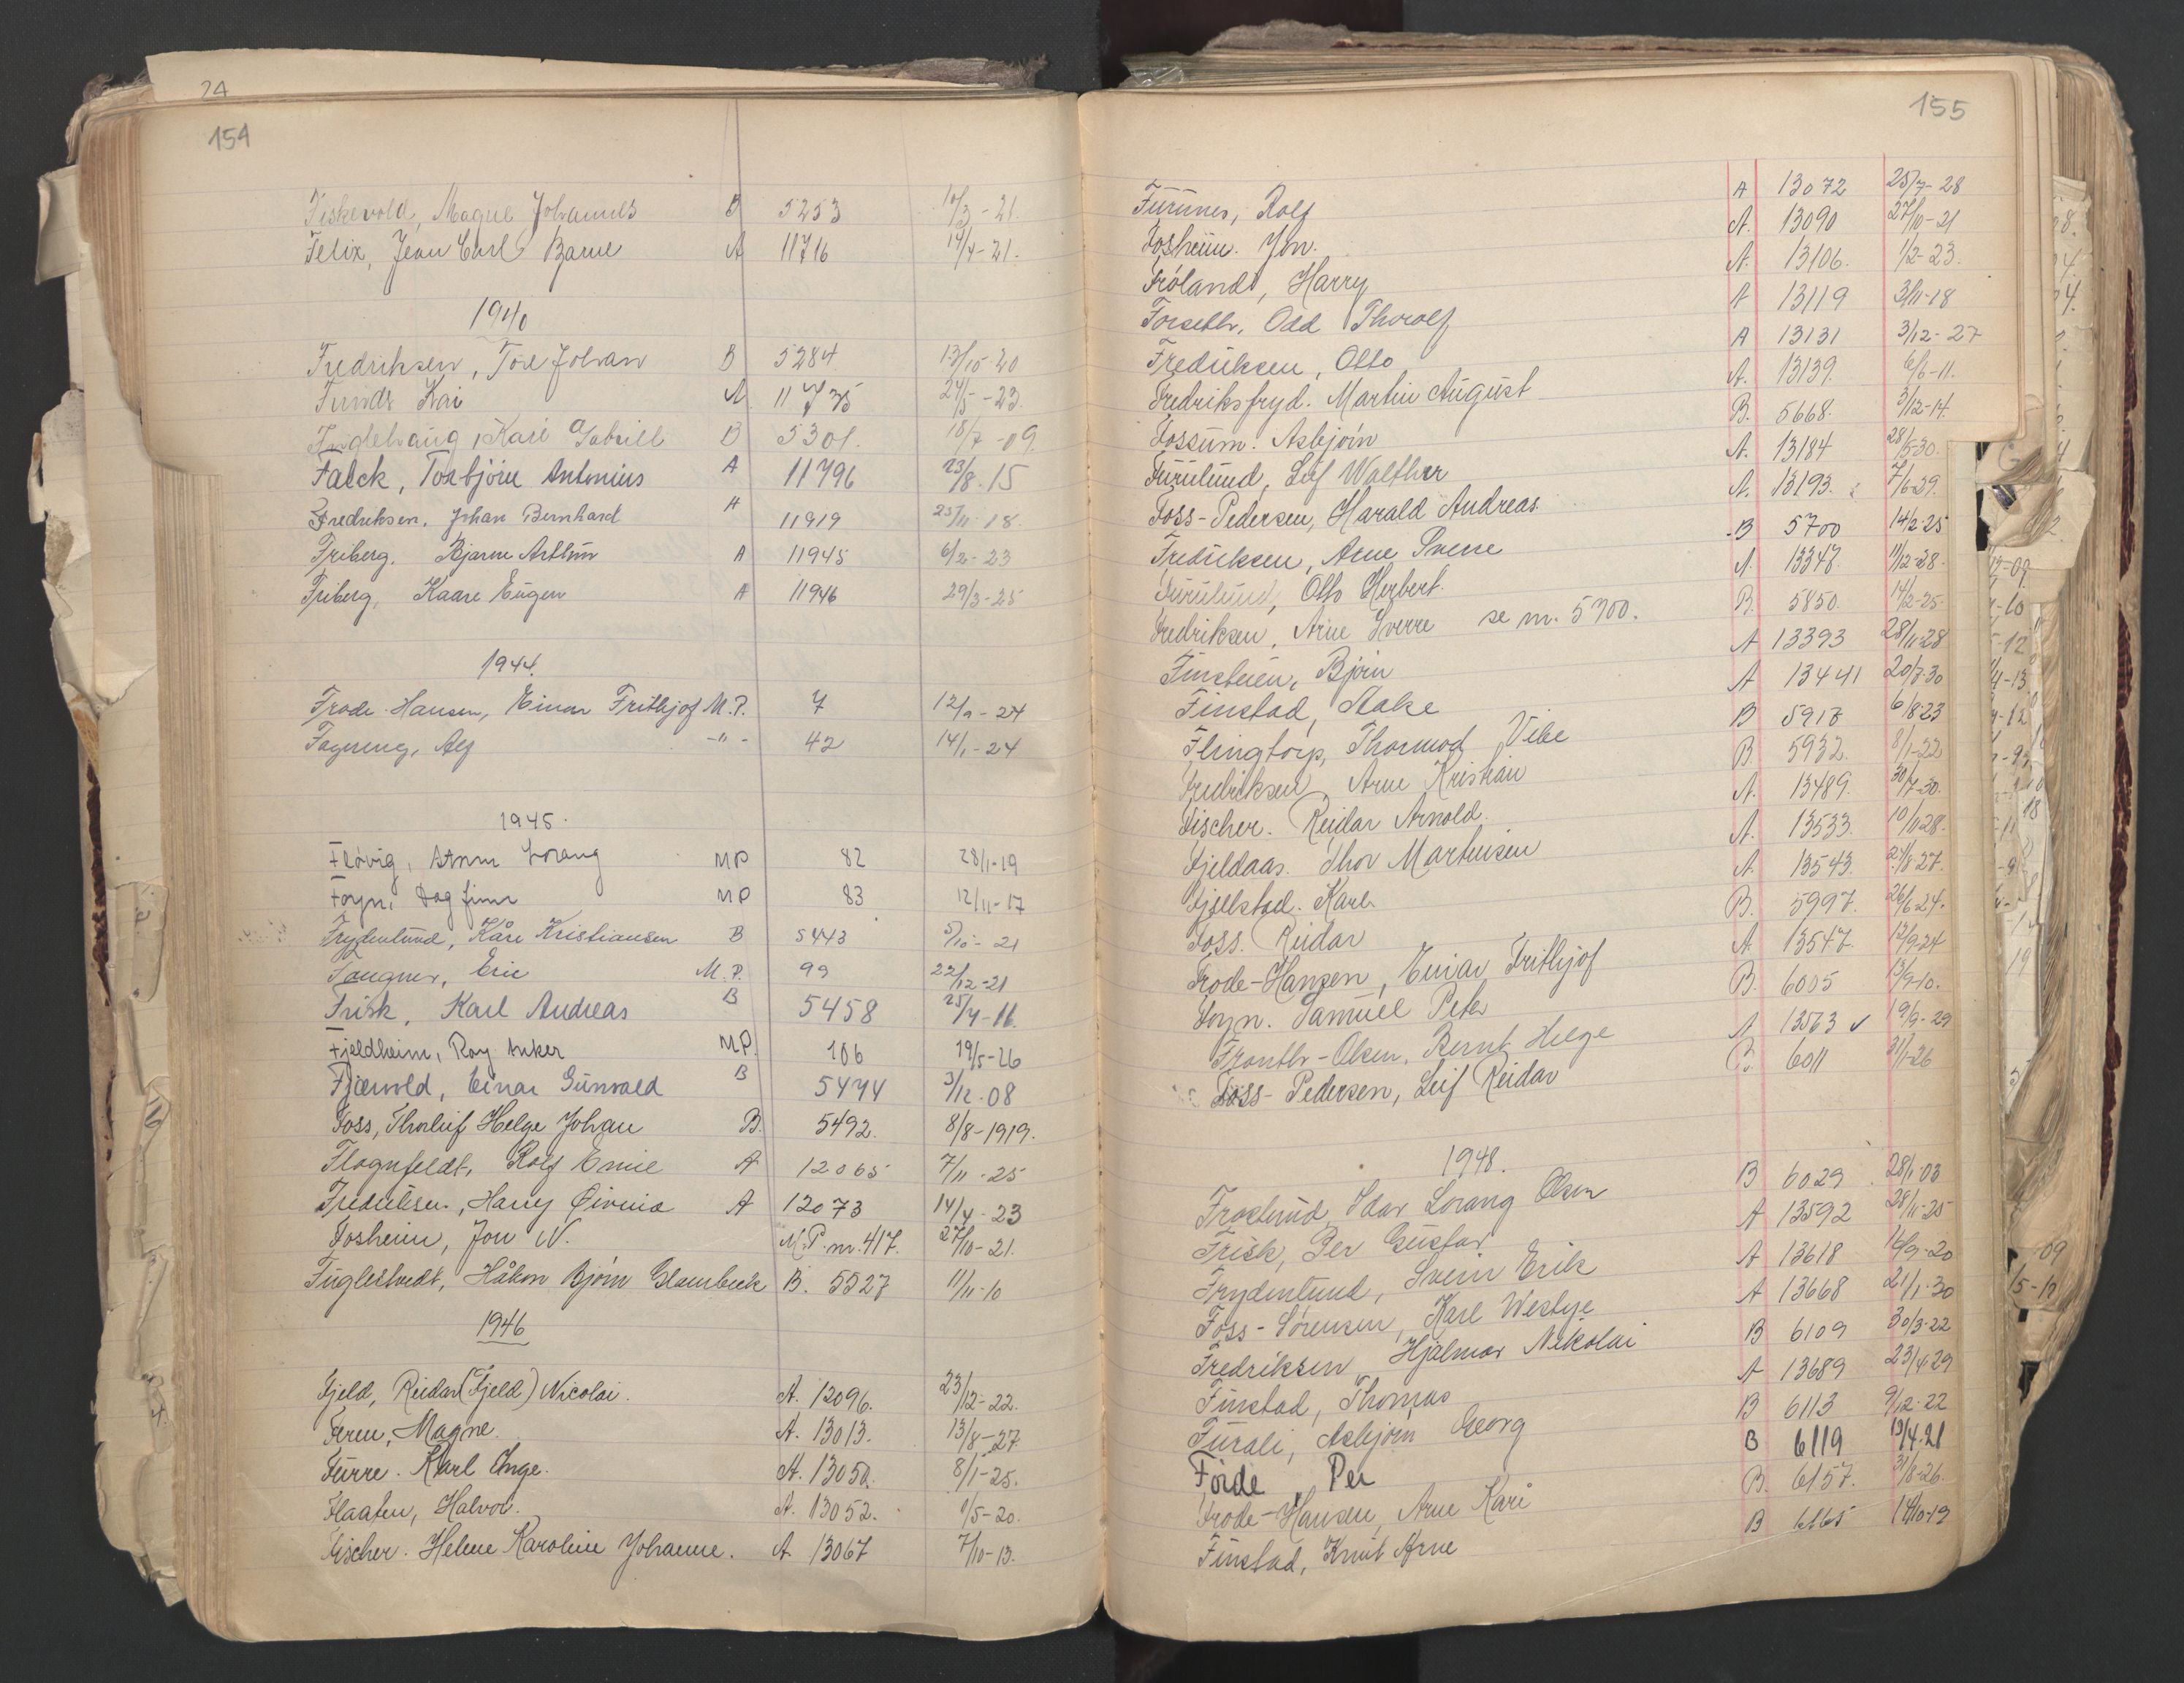 24
154
Fiskevold, Magne Johannes B 5253 10/3-21
Felix, Jean Carl Bjarne A 11716 14/4-21.
1940
Fredriksen, Tor Johan B 5284 13/10-20
Funds Kai A 11735 24/5-23.
Kare Gabriell B 5301. 18/7-09.
Falck, Torbjörn Antonius A 11796 23/8.15
Fredriksen, Johan Bernhard A 11919 25/11-18.
Friberg, Bjarne Arthur A 11945 6/2-23
Friberg, Kaare Eugen A 11946 29/3-25
1944.
Frode-Hansen, Einar Frithjof M.P. 7 12/9-24
Fagereng, Alf -"- 42 14/1-24
1945.
Fløvig, Lorang MP 82 28/1-19
Foyn, Dag Finn MP 83 12/11-17
Frydenlund, Kåre Kristiansen B 5443 5/10-21
Fougner, Eric M.P. 99 22/12-21
Frisk, Karl Andreas B 5458 25/4-16.
Fjeldheim, Roy Anker MP. 106 19/5-26
Fjærvold, Einar Gunvald B 5474 3/12.08
Foss, Thorleif Helge Johan B. 5492. 8/8-1919.
Flognfeldt, Rolf Emil A 12065 7/11-25
Fredriksen, Harry Øivind A 12073 14/4-23
Fosheim, Jon N. M.P. nr. 417. 27/10-21.
Fuglestvedt, Håkon Bjørn Glambeck B. 5527 11/11-10
1946
Fjeld, Reidar (Fjeld) Nicolai. A. 12096. 23/12-22.
Feren, Magne. A. 13013. 13/8-27
Furre. Karl Inge. A. 13050. 8/1-25.
Flaaten, Halvor. A. 13052. 1/5-20.
Fischer. Helene Karoline Johanne. A. 13067 7/10-13.
155
Furunes, Rolf A 13072 25/7-28
Fosheim. Jon. A. 13090 27/10-21
Frøland, Harry A. 13106. 1/2-23.
Forseth, Odd Thorolf A 13119 3/11-18
Fredriksen, Otto A 13131 3/12-27
Fredriksfryd. Martin August A. 13139. 6/6-11.
Fossum. Asbjørn B. 5668. 3/12-14.
Furulund, Leif Walther A. 13184 28/5-30.
Foss-Pedersen, Harald Andreas. A. 13193. 7/6-29.
Fredriksen, Arne Sverre B 5700 14/2-25
Furulund, Otto Herbert. A. 13347. 11/12-28.
Fredriksen, Arne Sverre se nr. 5700. B. 5850. 14/2-25.
Finsteien, Bjørn A 13393 28/11-28
Finstad, Aake A 13441 20/3-30
Flingtorp, Thormod Vibe B 5917 6/8-23
Fredriksen, Arne Kristian B. 5932. 8/1-22
Fischer. Reidar Arnold. A. 13489. 30/7-30.
Fjeldaas. Thor Martinsen A. 13533. 10/11-28.
Fjelstad. Karl. A. 13543. 24/8-27.
Foss. Reidar B. 5997. 26/6-24.
Frode-Hansen, Einar Frithjof A. 13547. 12/9-24
Foyn. Samuel Peter B. 6005 13/9-10.
Fronth-Olsen, Bernt Helge A. 13563 ✓ 19/9-29
Foss-Pedersen, Leif Reidar B. 6011 31/1-26
1948.
Froslund, Idar Lorang Olsen B 6029 28/1-03
Frisk, Per Gustav A 13592 28/11-25
Frydenlund, Svein Erik A 13618 16/9-20
Foss-Sørensen, Karl Westye A 13668 21/1-30
Fredriksen, Hjalmar Nikolai B 6109 30/3-22
Finstad, Thomas A 13689 23/4-29
Furali, Asbjørn Georg B 6113 9/12-22
Førde, Per B 6119 13/4.21
Frode-Hansen, Arne Kari B. 6157. 31/8-26.
Finstad, Knut Arne B 6165 14/10-19